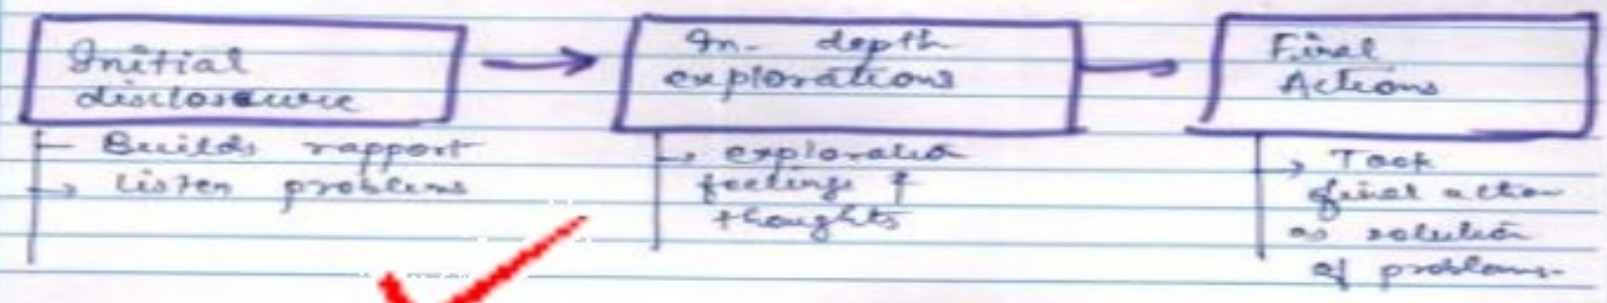 Initial
disclosure
In-depth
explorations
Final
Actions
Builds rapport
listen problems
exploration
feelings &
thoughts
Took
final action
as solution
of problems